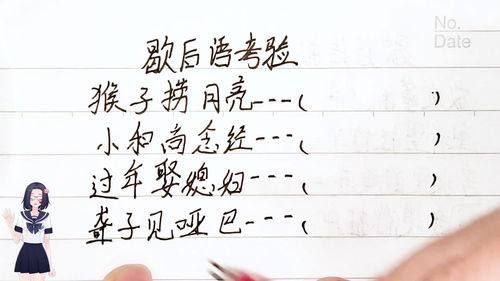 No.
Date
歇后语考验
猴子捞月亮---( )
小和尚念经---( )
过年娶媳妇---( )
聋子见哑巴---( )